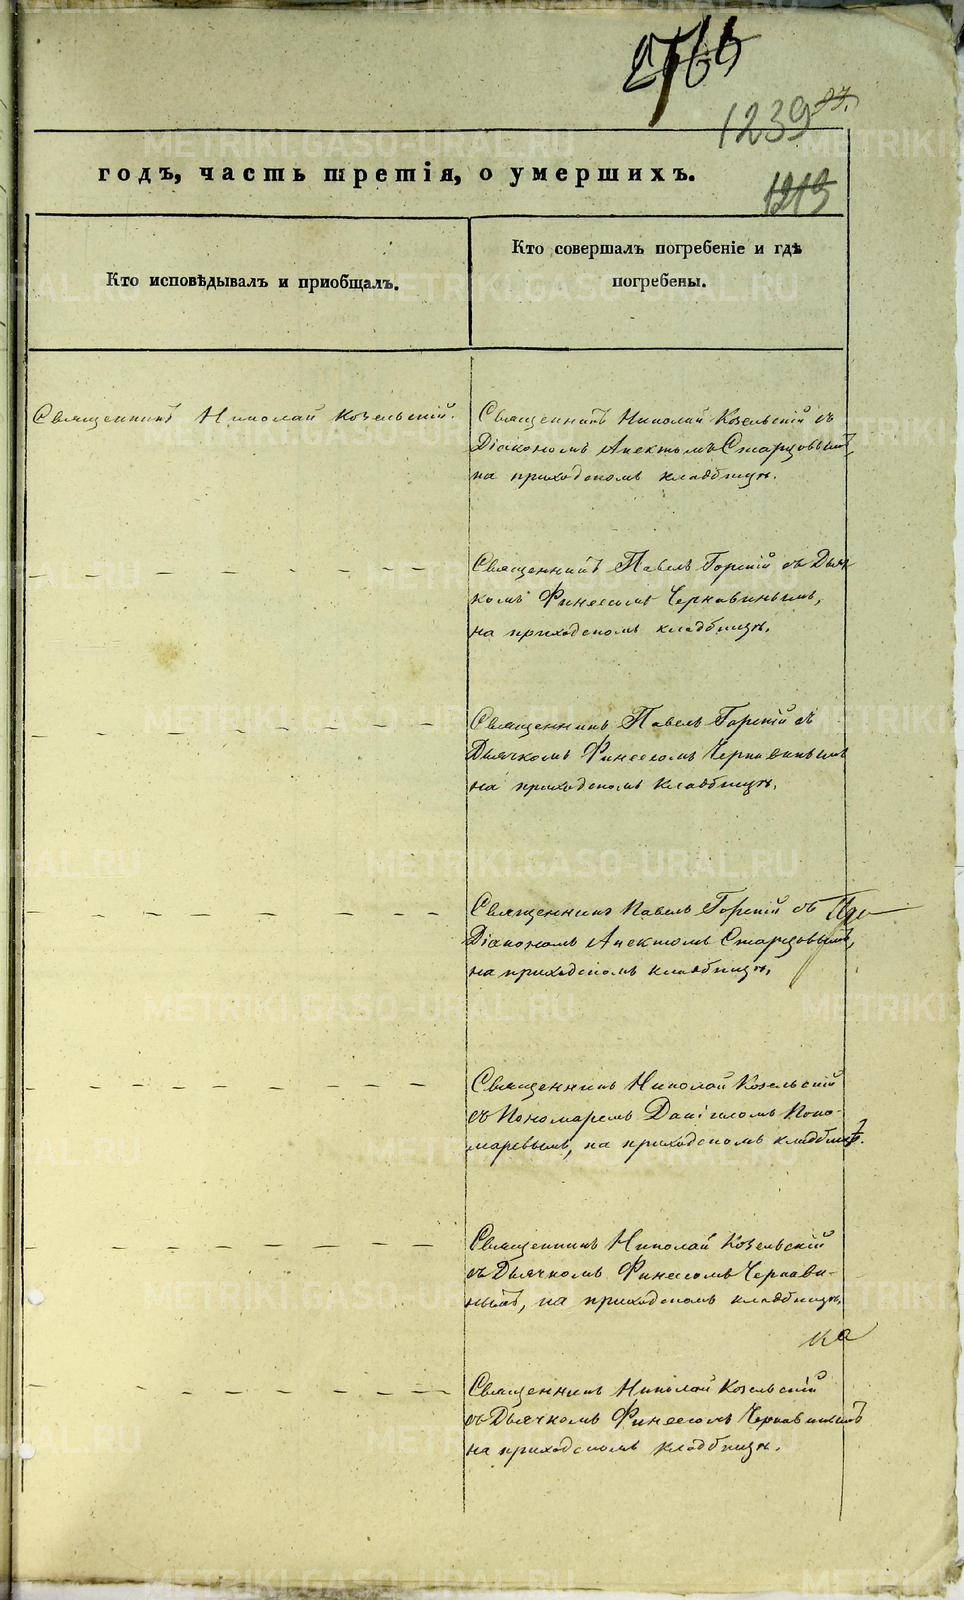 1239
1213
годъ, часть третія, о умершихъ.
Кто исповѣдывалъ и приобщалъ.
Кто совершалъ погребеніе и гдѣ
погребены.
Священникъ Николай Козельскій.
Священникъ Николай Козельскій съ
Діакономъ Анектомъ Старцовымъ,
на приходскомъ кладбищѣ.
Священникъ Павелъ Горскій съ Дьяч
комъ Финеесомъ Чернавинымъ,
на приходскомъ кладбищѣ.
Священникъ Павелъ Горскій съ
Дьячкомъ Финеесомъ Чернавинымъ
на приходскомъ кладбищѣ.
Священникъ Павелъ Горскій съ
Діакономъ Анектомъ Старцовымъ,
на приходскомъ кладбищѣ.
Священникъ Николай Козельскій
съ Пономаремъ Даніиломъ Поно-
маревымъ, на приходскомъ кладбищѣ.
Священникъ Николай Козельскій
съ Дьячкомъ Финеесомъ Чернави-
нымъ, на приходскомъ кладбищѣ.
ка
Священникъ Николай Козельскій
съ Дьячкомъ Финеесомъ Чернавинымъ
на приходскомъ кладбищѣ.
METRIKI.GASO-URAL.RU